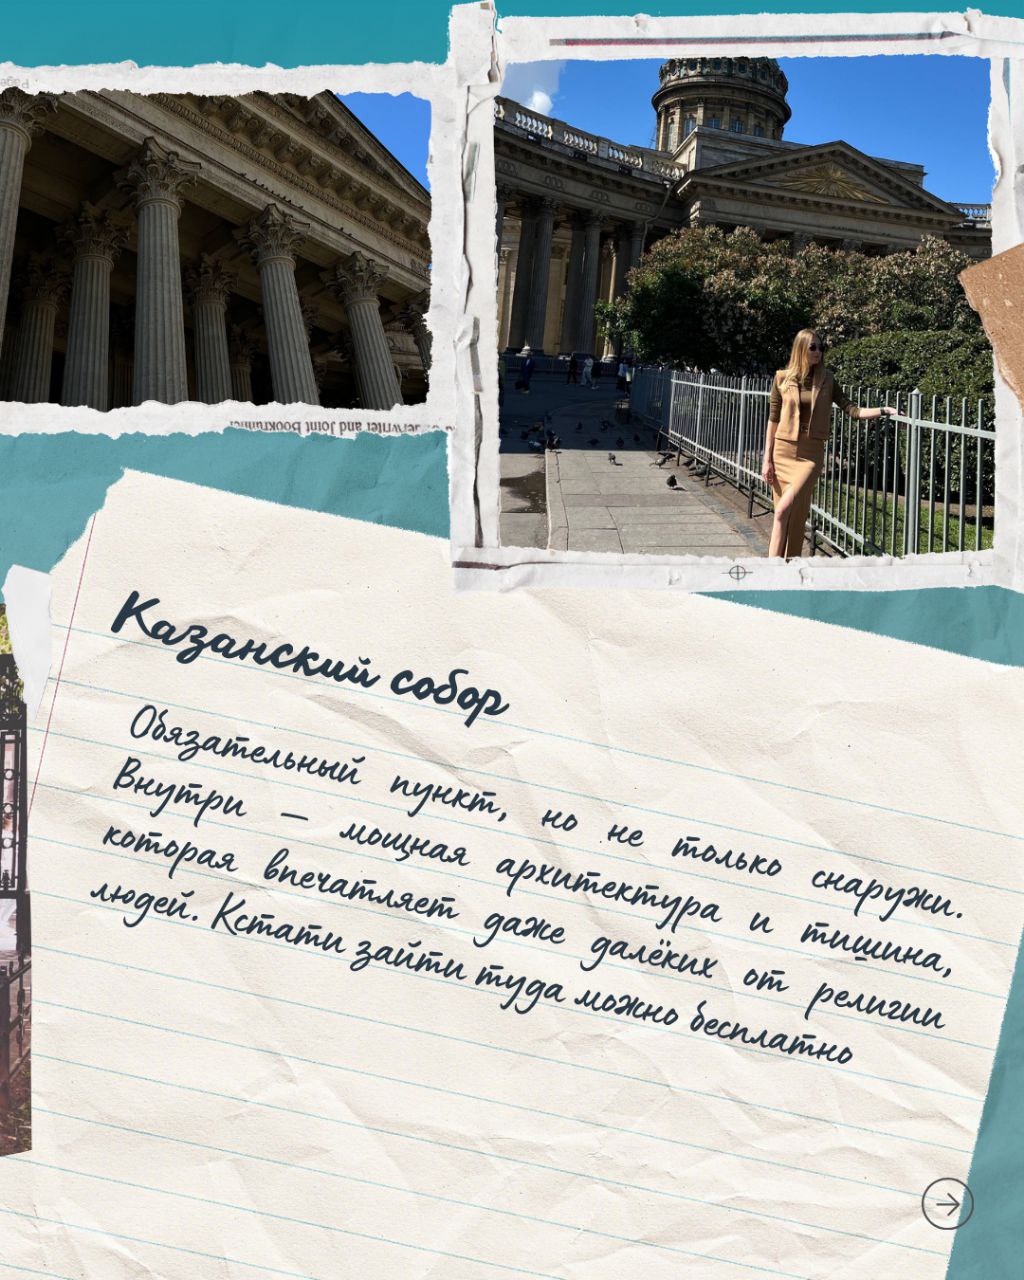 Казанский собор
Обязательный пункт, но не только снаружи.
Внутри — мощная архитектура и тишина,
которая впечатляет даже далёких от религии
людей. Кстати зайти туда можно бесплатно